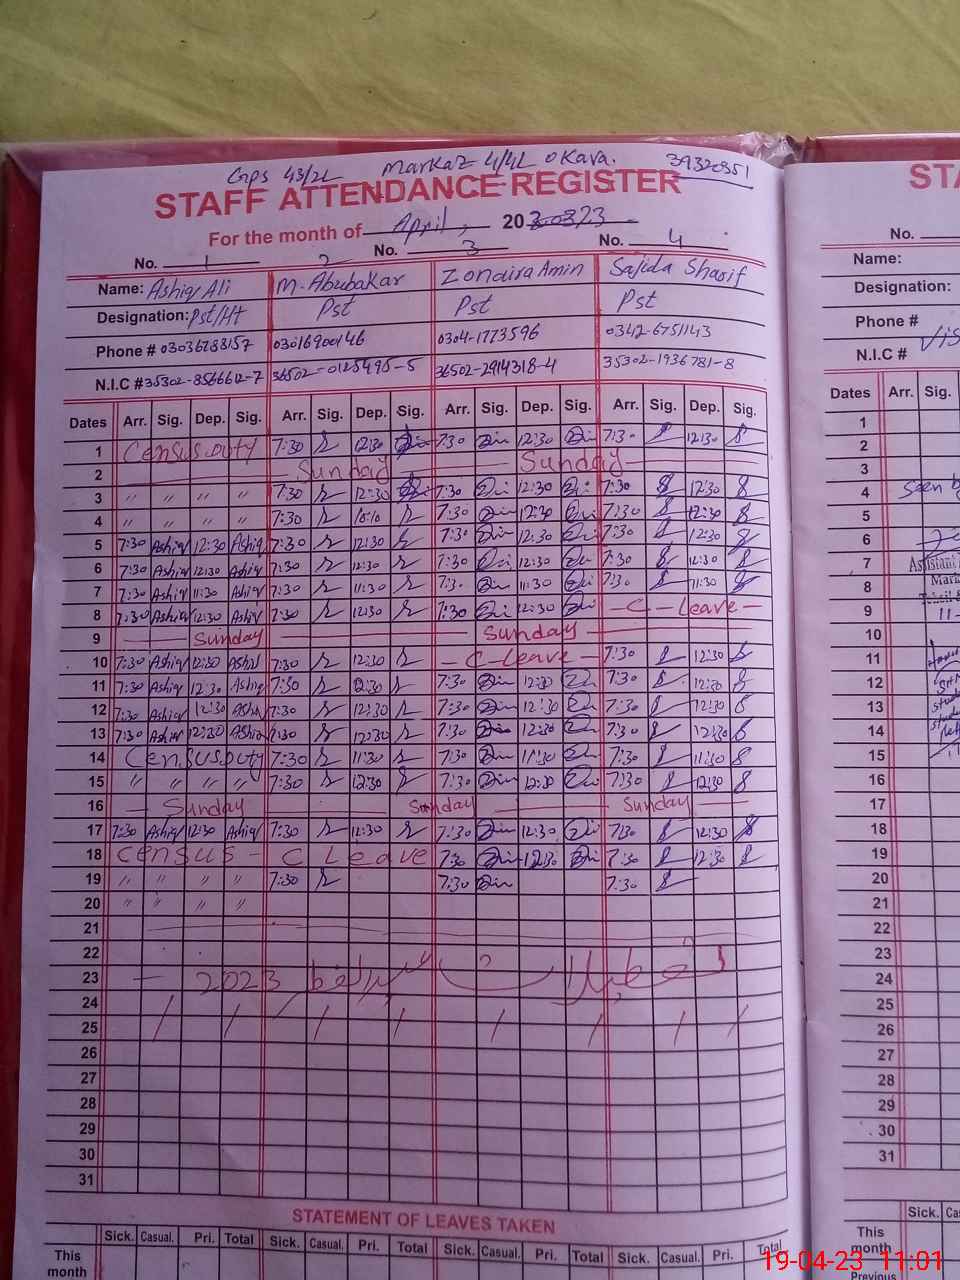 Gps 43/2L Markaz 4/4L Okara. 39320351
STAFF ATTENDANCE REGISTER
For the month of April, 2023
No. 1 No. 2 No. 3 No. 4
Name: Ashiq Ali M. Abubakar Zonaira Amin Sajida Sharif
Designation: Pst/Ht Pst Pst Pst
Phone # 03036788157 03016900146 0304-1773596 0342-6751143
N.I.C # 35302-8566612-7 36502-0125495-5 36502-2914318-4 35302-1936781-8
Dates Arr. Sig. Dep. Sig. Arr. Sig. Dep. Sig. Arr. Sig. Dep. Sig. Arr. Sig. Dep. Sig.
1 Census Duty 7:30 12:30 7:30 12:30 7:30 12:30
2 Sunday Sunday
3 " " " " 7:30 12:30 7:30 12:30 7:30 12:30
4 " " " " 7:30 7:30 12:30 7:30 12:30
5 7:30 Ashiq 12:30 Ashiq 7:30 12:30 7:30 12:30 7:30 12:30
6 7:30 Ashiq 12:30 Ashiq 7:30 12:30 7:30 12:30 7:30 12:30
7 7:30 Ashiq 11:30 Ashiq 7:30 11:30 7:30 11:30 7:30 11:30
8 7:30 Ashiq 12:30 Ashiq 7:30 12:30 7:30 12:30 - C - Leave -
9 Sunday Sunday
10 7:30 Ashiq 12:30 Ashiq 7:30 12:30 - C - Leave - 7:30 12:30
11 7:30 Ashiq 12:30 Ashiq 7:30 12:30 7:30 12:30 7:30 12:30
12 7:30 Ashiq 12:30 Ashiq 7:30 12:30 7:30 12:30 7:30 12:30
13 7:30 Ashiq 12:30 Ashiq 7:30 12:30 7:30 12:30 7:30 12:30
14 Census Duty 7:30 11:30 7:30 11:30 7:30 11:30
15 " " " " 7:30 12:30 7:30 12:30 7:30 12:30
16 Sunday Sunday Sunday
17 7:30 Ashiq 12:30 Ashiq 7:30 12:30 7:30 12:30 7:30 12:30
18 Census - C Leave 7:30 12:30 7:30 12:30
19 " " " " 7:30 7:30 7:30
20 " " " "
21
22
23 تعطیلات عیدالفطر 2023
24
25
26
27
28
29
30
31
STATEMENT OF LEAVES TAKEN
Sick. Casual. Pri. Total Sick. Casual. Pri. Total Sick. Casual. Pri. Total Sick. Casual. Pri. Total
This month
ST
No.
Name:
Designation:
Phone #
N.I.C #
Dates Arr. Sig.
1
2
3
4 Seen by
5
6
7 Assistant
8
9 11-
10
11
12
13
14
15
16
17
18
19
20
21
22
23
24
25
26
27
28
29
30
31
Sick. Ca
This month
Previous
19-04-23 11:01